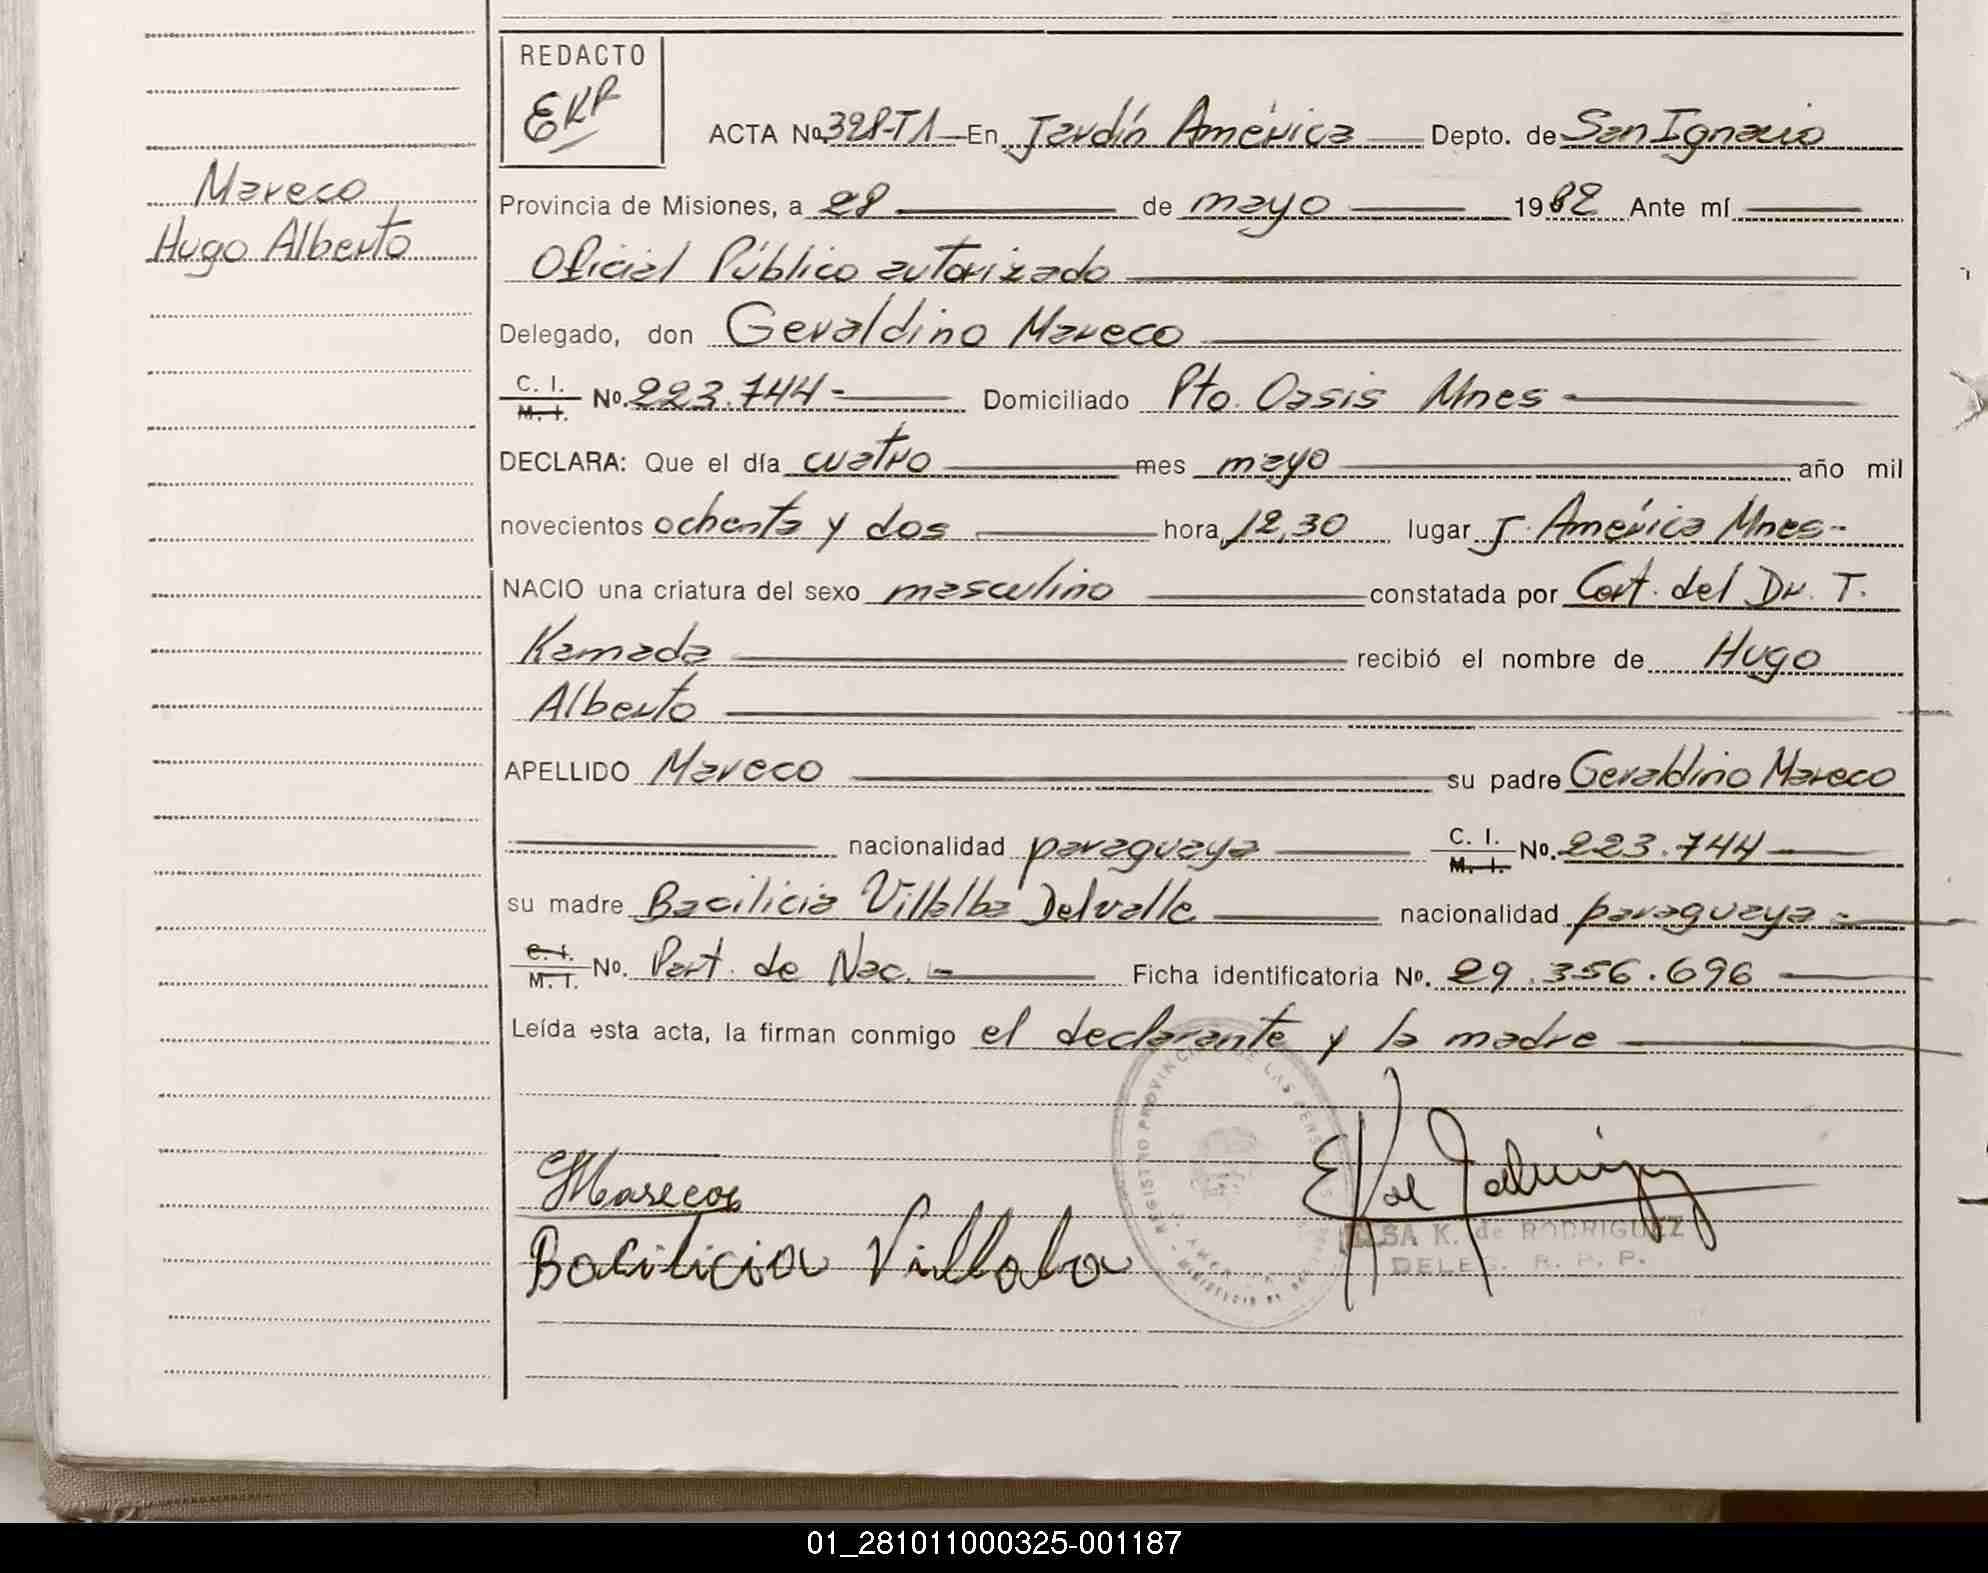 REDACTO
EKR
ACTA No. 398-T1 En Jardín América Depto. de San Ignacio
Mareco
Hugo Alberto
Provincia de Misiones, a 28 de mayo 1982 Ante mí
Oficial Público autorizado
Delegado, don Geraldino Mareco
C. I. M. I. No. 223.744- Domiciliado Pto. Oasis Mnes
DECLARA: Que el día cuatro mes mayo año mil
novecientos ochenta y dos hora 12,30 lugar J. América Mnes-
NACIO una criatura del sexo masculino constatada por Cert. del Dr. T.
Kamada recibió el nombre de Hugo
Alberto
APELLIDO Mareco su padre Geraldino Mareco
nacionalidad paraguaya C. I. M. I. No. 223.744
su madre Bacilicia Villalba Delvalle nacionalidad paraguaya
C. I. M. I. No. Part. de Nac. Ficha identificatoria No. 29.356.696
Leída esta acta, la firman conmigo el declarante y la madre
REGISTRO PROVINCIAL DE LAS PERSONAS
GMarecos
Bacilicia Villalba
ELSA K. de RODRIGUEZ
DELEG. R. P. P.
01_281011000325-001187